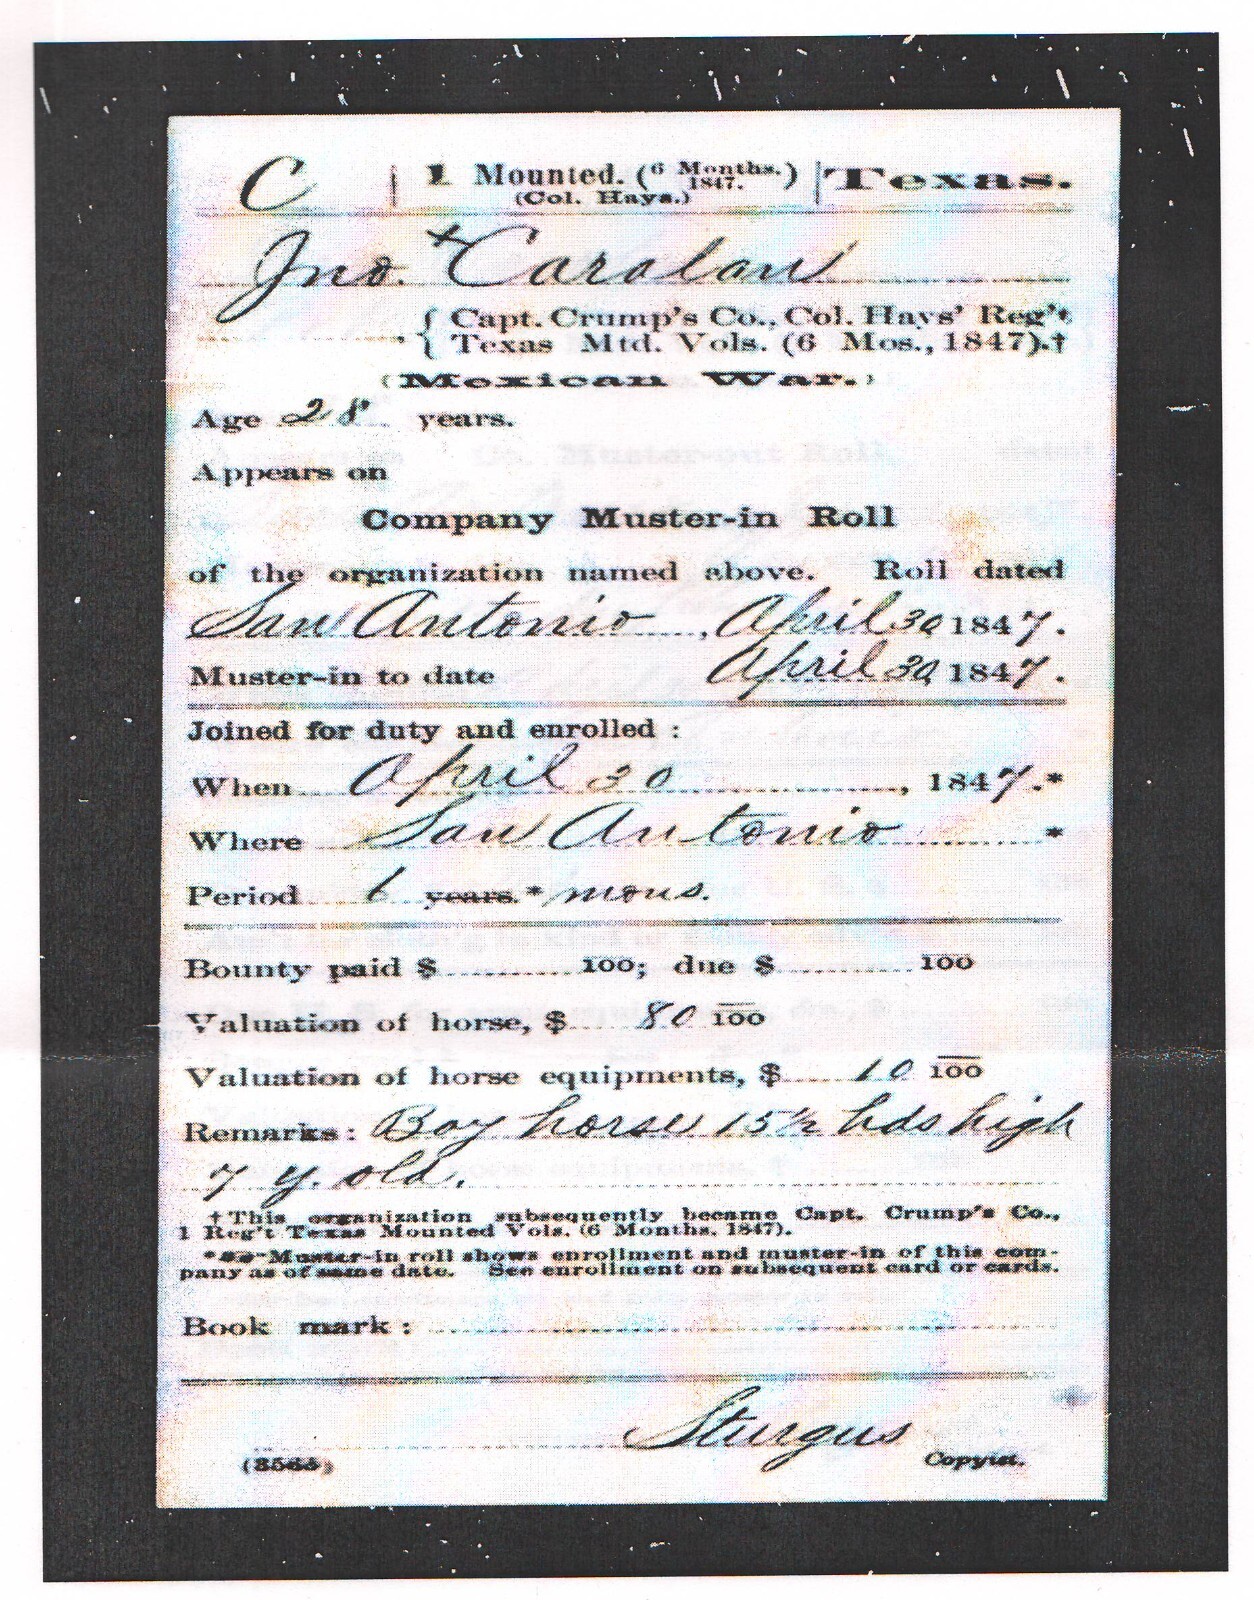 C | 1 Mounted. (6 Months. 1847.) | Texas.
(Col. Hays.)
Jno. + Carolan
{ Capt. Crump's Co., Col. Hays' Reg't
{ Texas Mtd. Vols. (6 Mos., 1847).†
(Mexican War.)
Age 28 years.
Appears on
Company Muster-in Roll
of the organization named above. Roll dated
San Antonio, April 30 1847.
Muster-in to date April 30 1847.
Joined for duty and enrolled :
When April 30, 1847.*
Where San Antonio *
Period 6 years.* mons.
Bounty paid $ 100; due $ 100
Valuation of horse, $ 80 — 100
Valuation of horse equipments, $ 10 — 100
Remarks: Bay horse 15 ½ hds high
7 y. old.
†This organization subsequently became Capt. Crump's Co.,
1 Reg't Texas Mounted Vols. (6 Months, 1847).
* Muster-in roll shows enrollment and muster-in of this com-
pany as of same date. See enrollment on subsequent card or cards.
Book mark :
Sturgus
Copyist.